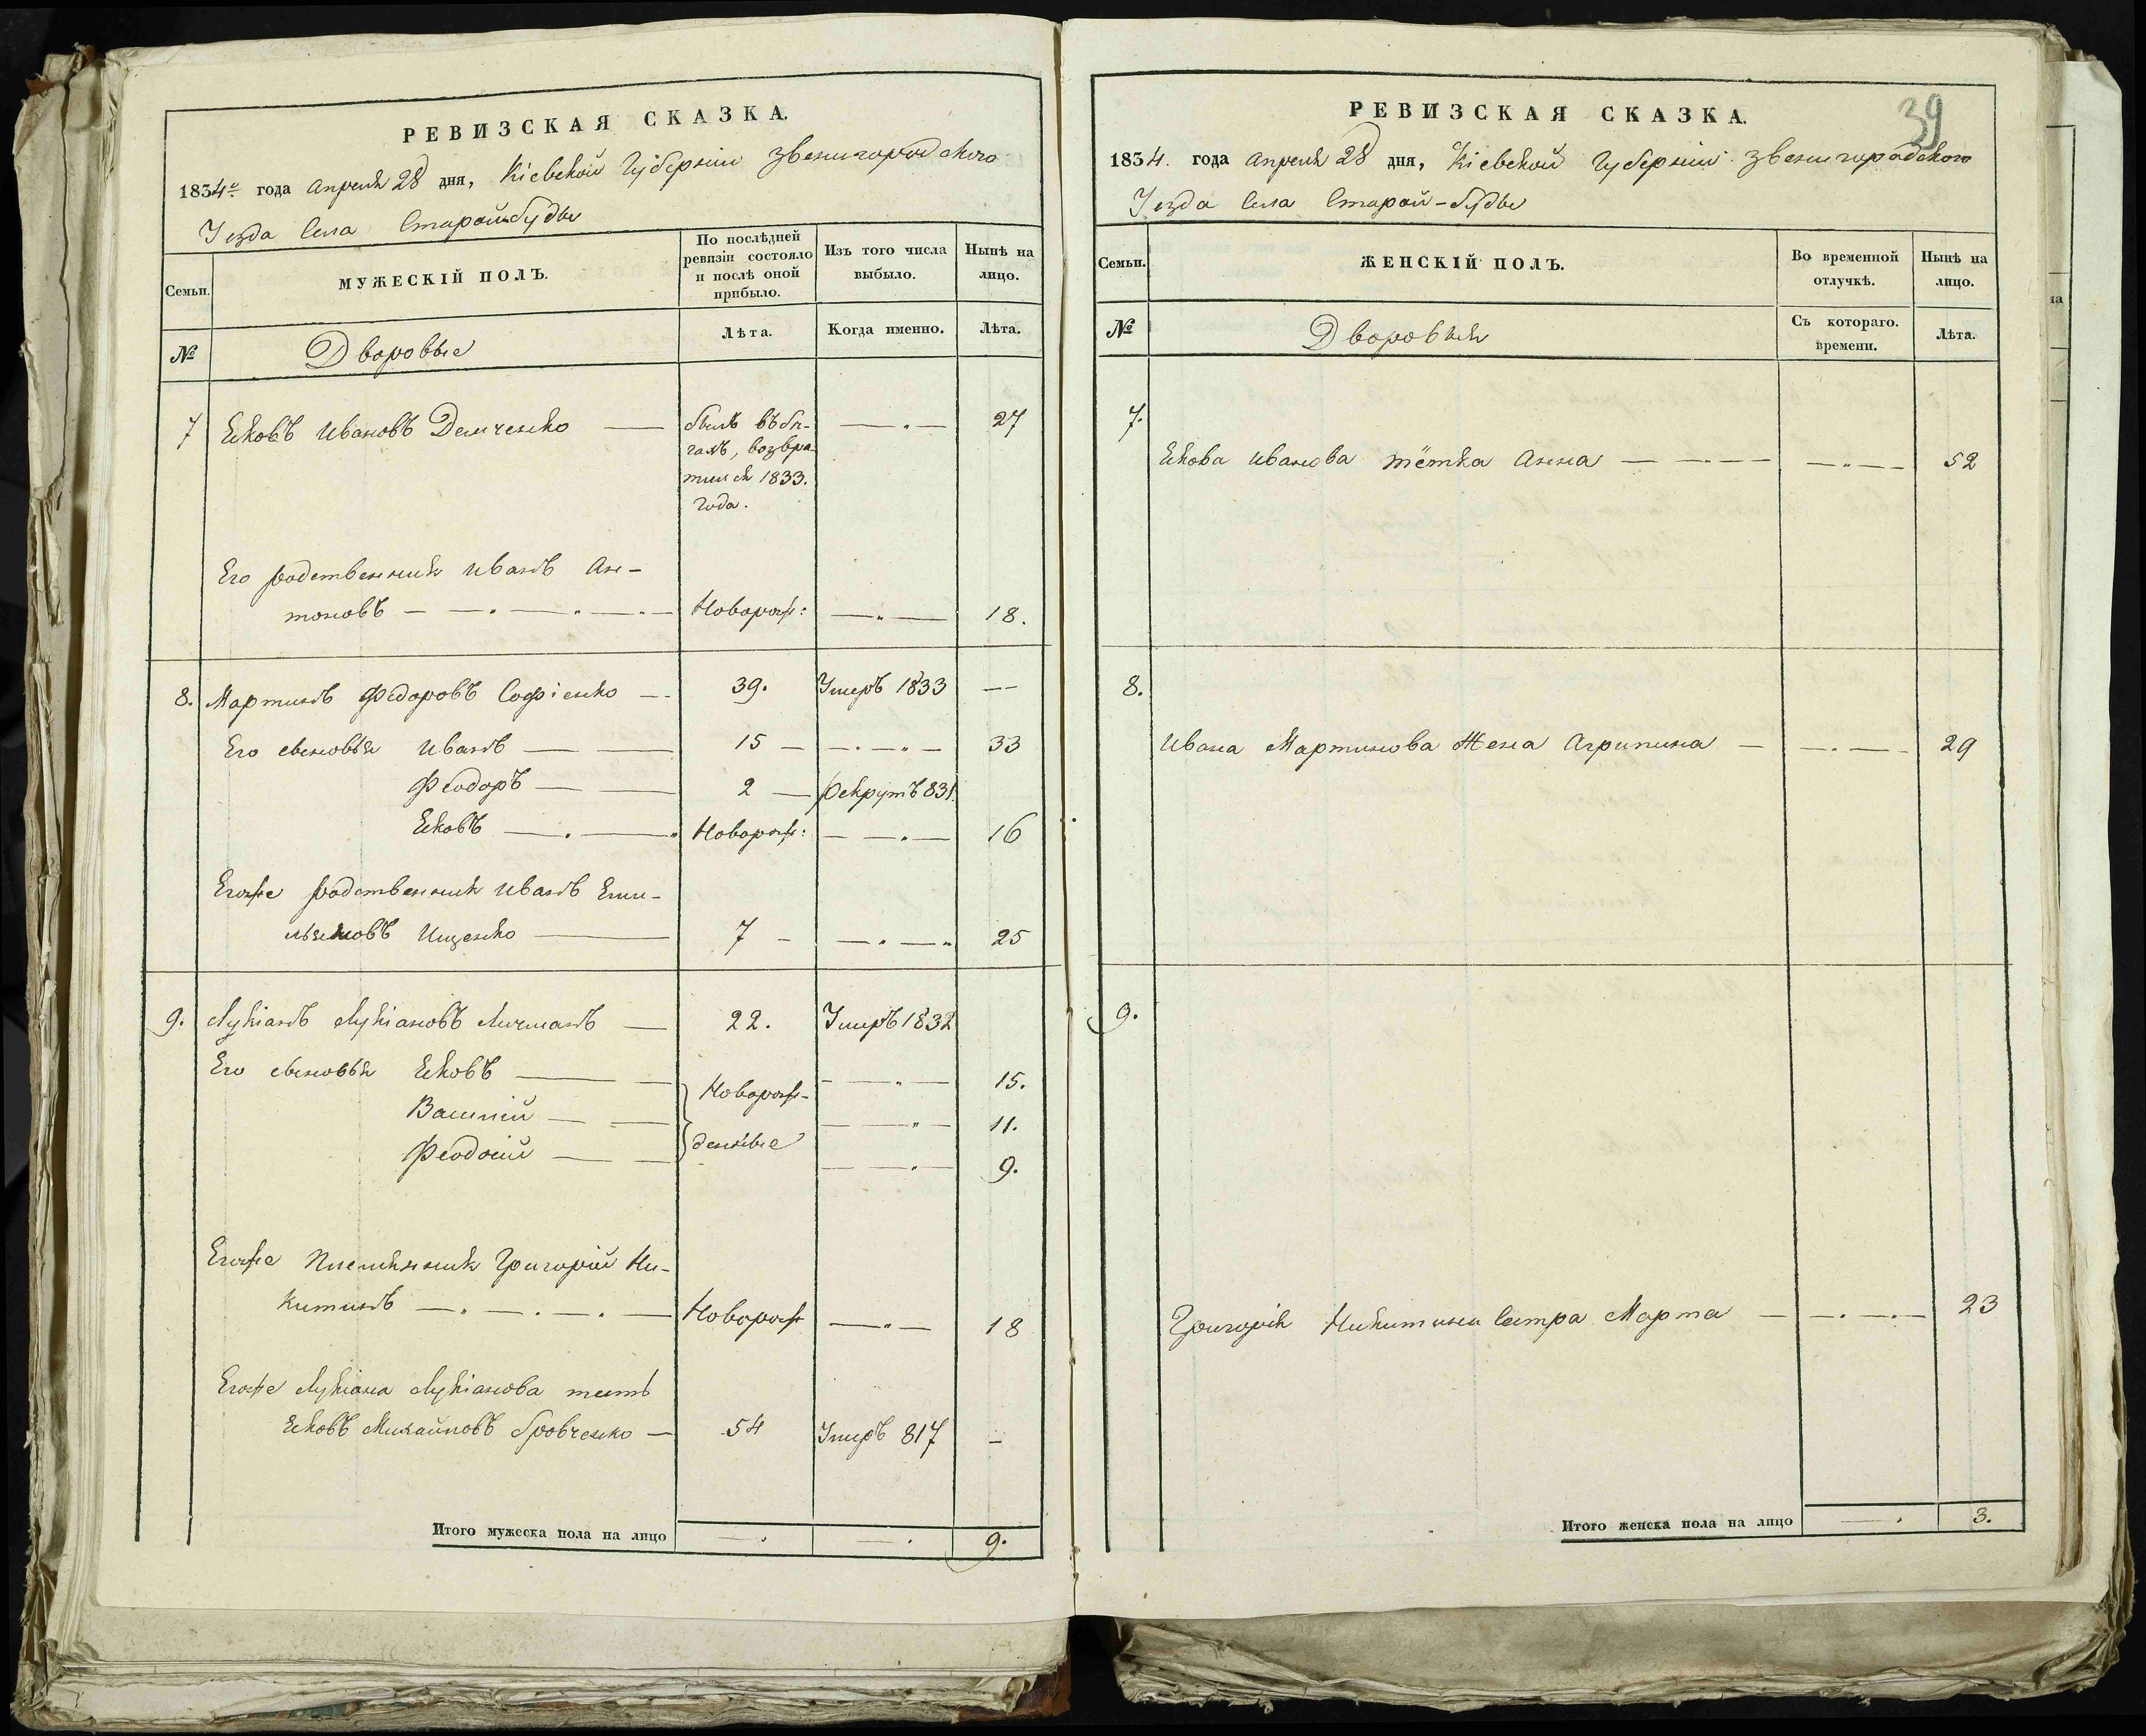 РЕВИЗСКАЯ СКАЗКА.
1834го года Апреля 28 дня, Кіевской Губерніи Звенигородского
Уезда Села Старой-Буды
Семьи.
МУЖЕСКІЙ ПОЛЪ.
По послѣдней ревизіи состояло и послѣ оной прибыло.
Изъ того числа выбыло.
Нынѣ на лицо.
№
Дворовые
Лѣта.
Когда именно.
Лѣта.
7 Яковъ Ивановъ Демченко — былъ въ бѣ- — 27
гахъ, возвра-
тился 1833.
года.
Его родственникъ Иванъ Ан-
тоновъ — Новорож: — 18.
8. Мартинъ Федоровъ Софіенко — 39. Умеръ 1833 —
Его сыновья Иванъ — 15 — 33
Феодоръ — 2 — рекрутъ 831.
Яковъ — Новорож: — 16
Егоже родственникъ Иванъ Еми-
льяновъ Ищенко — 7 — 25
9. Лукіанъ Лукіановъ Личманъ — 22. Умеръ 1832
Его сыновья Яковъ — Новорож- — 15.
Василій — — 11.
Феодосій — денные — 9.
Егоже Племянникъ Григорій Ни-
китинъ — Новорож — 18
Егоже Лукіана Лукіанова тесть
Яковъ Михайловъ Бровченко — 54 Умеръ 817 —
Итого мужеска пола на лицо — — 9.
39
РЕВИЗСКАЯ СКАЗКА.
1834. года Апреля 28 дня, Кіевской Губерніи Звенигородского
Уезда Села Старой-Буды
Семьи.
ЖЕНСКІЙ ПОЛЪ.
Во временной отлучкѣ.
Нынѣ на лицо.
№
Дворовыя
Съ котораго. времени.
Лѣта.
7.
Якова Иванова тётка Анна — — 52
8.
Ивана Мартинова Жена Агрипина — — 29
9.
Григорія Никитина Сестра Марта — — 23
Итого женска пола на лицо — 3.